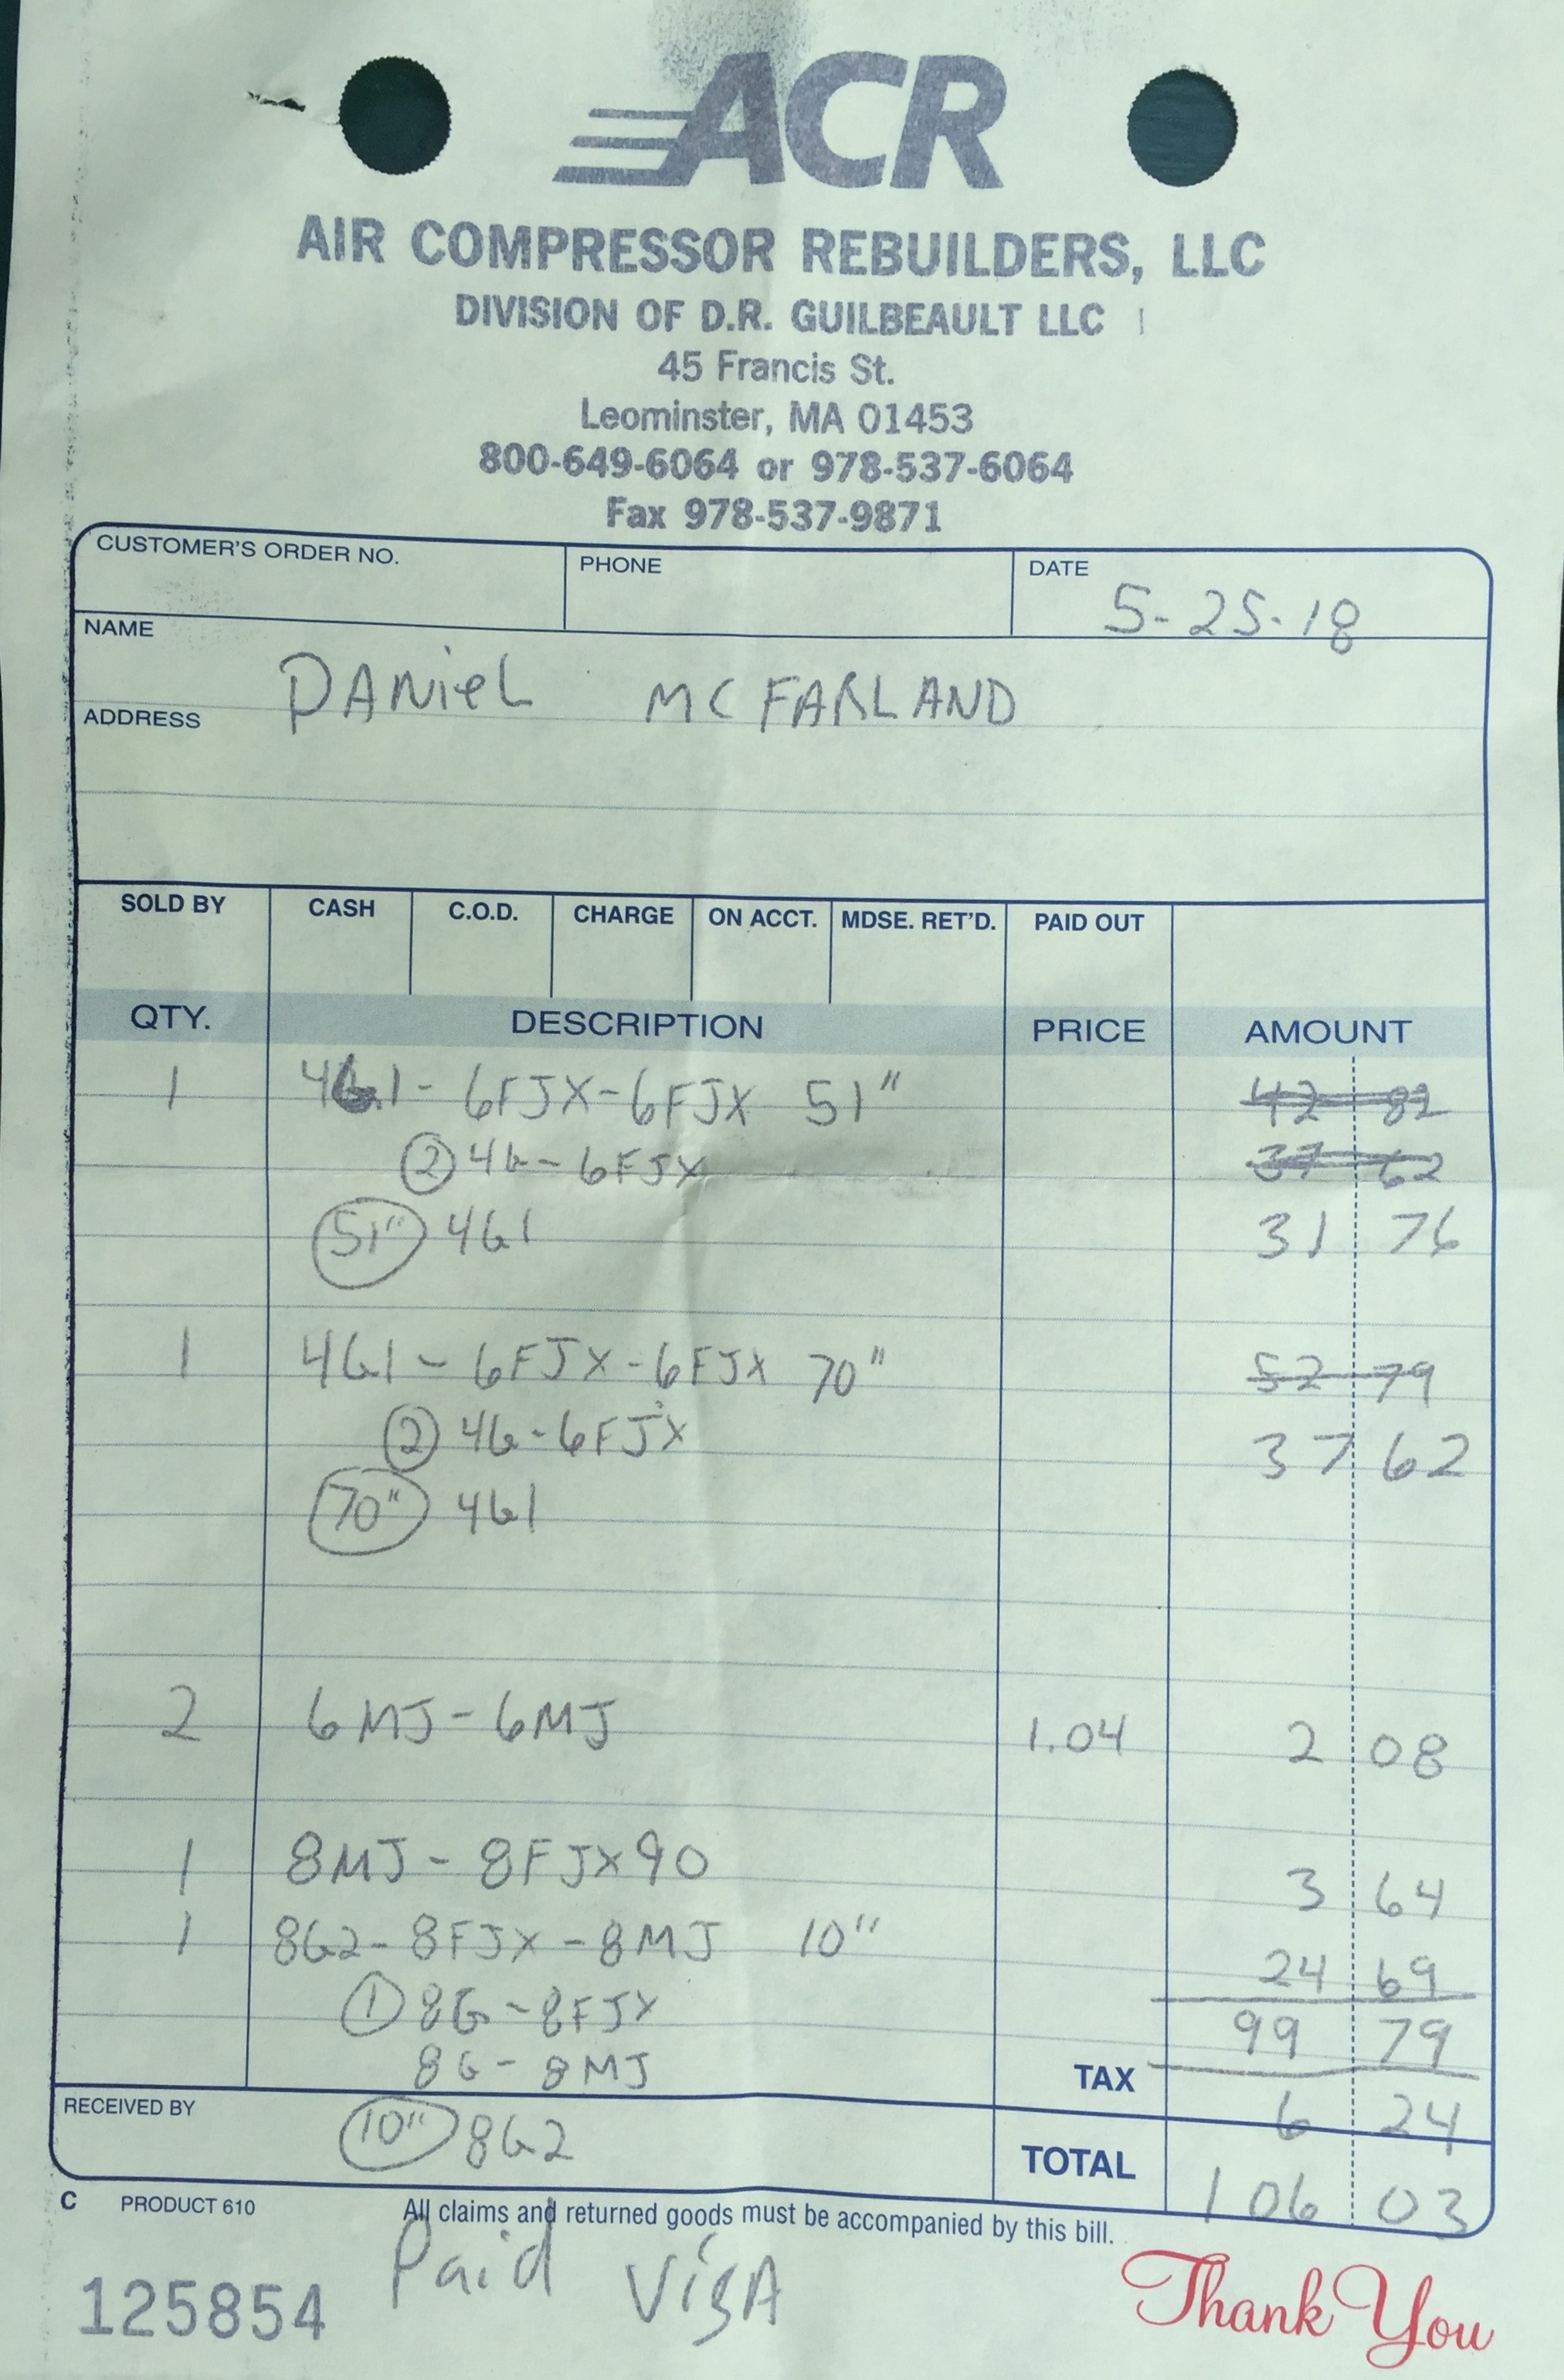 ACR
AIR COMPRESSOR REBUILDERS, LLC
DIVISION OF D.R. GUILBEAULT LLC
45 Francis St.
Leominster, MA 01453
800-649-6064 or 978-537-6064
Fax 978-537-9871
CUSTOMER'S ORDER NO. PHONE DATE 5-25-18
NAME DANiEL MCFARLAND
ADDRESS
SOLD BY CASH C.O.D. CHARGE ON ACCT. MDSE. RET'D. PAID OUT
QTY. DESCRIPTION PRICE AMOUNT
1 4G1- 6FJX-6FJX 51" 42 82
② 4G- 6FJX 37 62
51" 4G1 31 76
1 4G1 - 6FJX-6FJX 70" 52 79
② 4G-6FJX 37 62
70" 4G1
2 6MJ-6MJ 1.04 2 08
1 8MJ- 8FJX90 3 64
1 8G2-8FJX-8MJ 10" 24 69
① 8G-8FJX 99 79
8G- 8MJ TAX 6 24
RECEIVED BY 10" 8G2 TOTAL 106 03
C PRODUCT 610 All claims and returned goods must be accompanied by this bill.
Paid ViSA
125854 Thank You